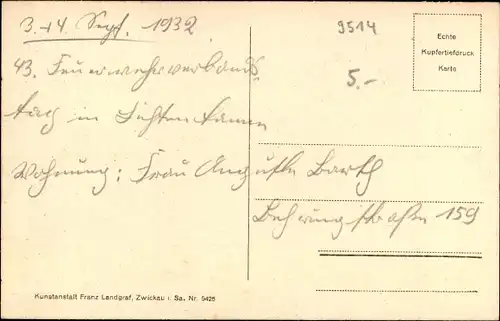 3.+4. Sept. 1932
9514
Echte
Kupfertiefdruck
Karte
5.-
43. Feuerwehrverbands-
tag in Lichtentannen
Wohnung: Frau Auguste Barth
Behringstraße 159
Kunstanstalt Franz Landgraf, Zwickau i. Sa. Nr. 5425